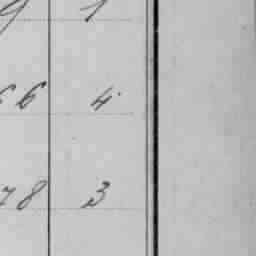 9 1
66 4
78 3